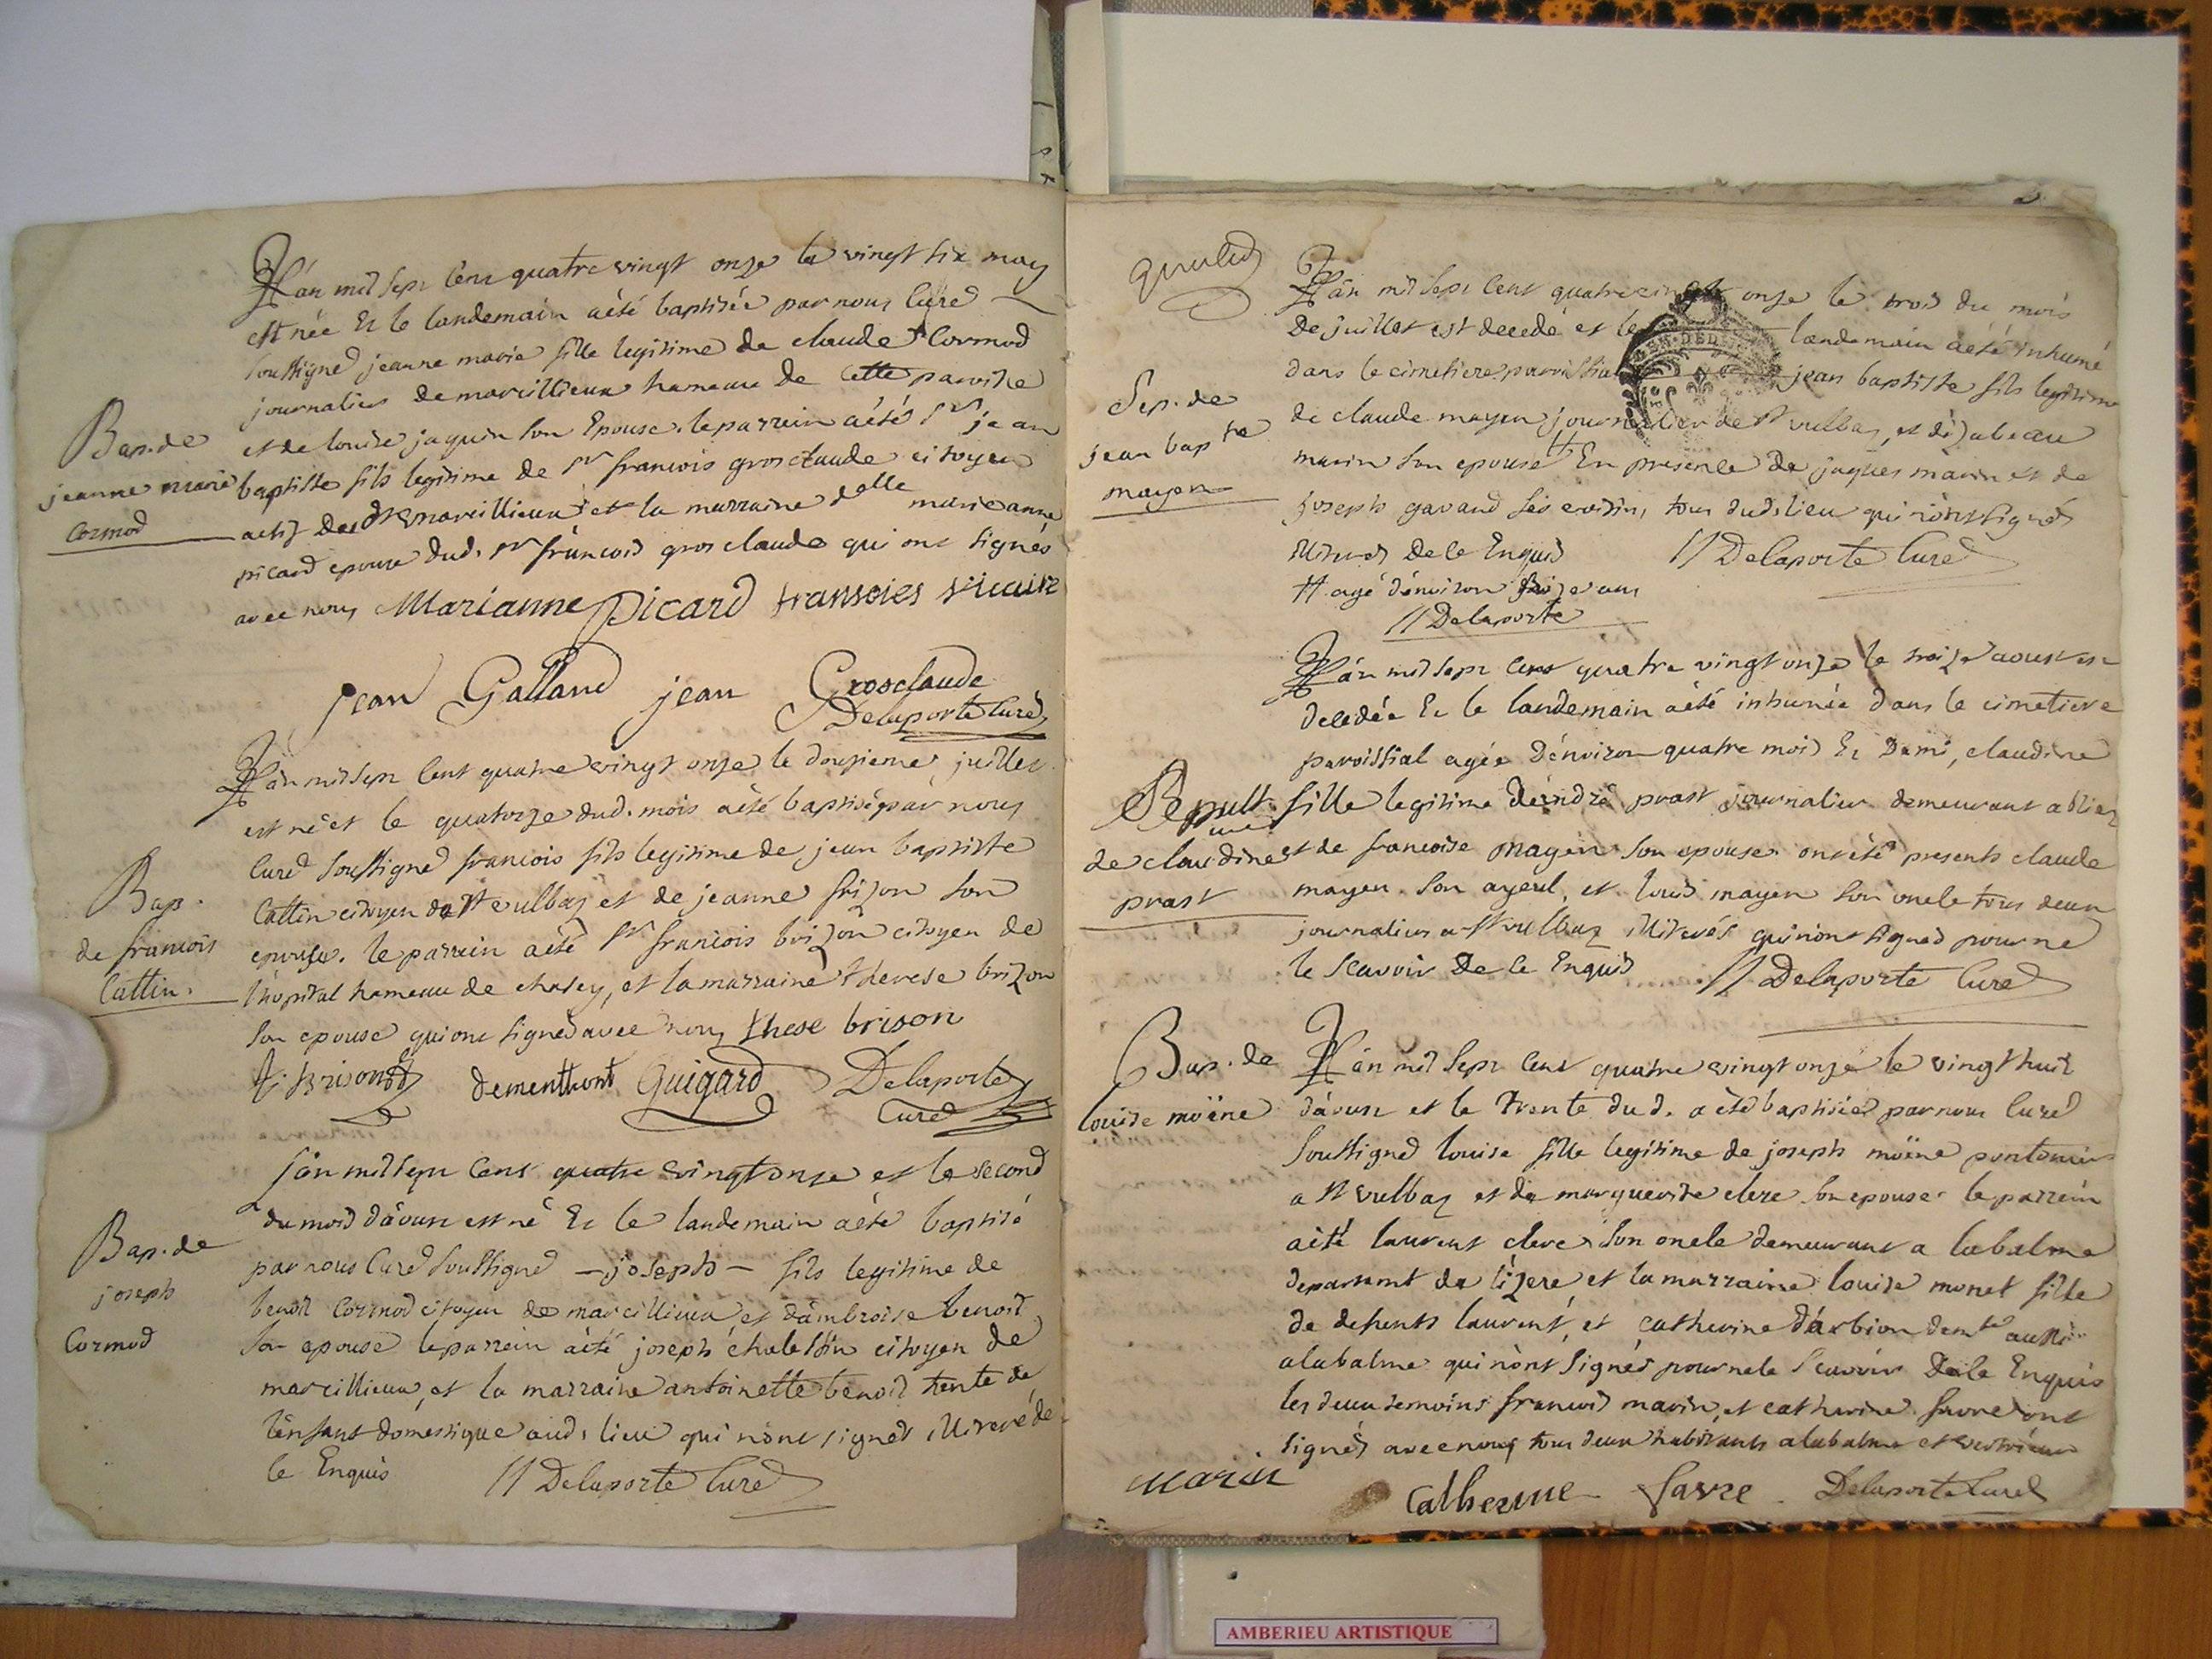 L'an mil sept cent quatre vingt onze le vingt six may
est née Et le landemain a été baptisée par nous Curé
soussigné jeanne marie fille legitime de claude Cormod
journalier de marcillieux hameau de cette paroisse
et de louise jaquin son Epouse. le parrein a été sr jean
Bap. de
jeanne marie
Cormod
baptiste fils legitime de sr francois grosclaude citoyen
actif dud. marcillieux et la marraine delle marie anne
picard epouse dud. sr francois gros claude qui ont signés
avec nous Marianne Picard
jean Galland jean Grosclaude
Delaporte Curé
L'an mil sept cent quatre vingt onze le douzieme juillet
est né et le quatorze dud. mois a été baptisé par nous
Curé soussigné francois fils legitime de jean baptiste
Bap.
de francois
Cattin.
Cattin citoyen de st vulbaz et de jeanne frizon son
epouse. le parrein a été sr francois brizon citoyen de
l'hopital hameau de chasey, et la marraine therese brizon
son epouse qui ont signés avec nous these brison
f. brison dementhont Guigard Delaporte
Curé
l'an mil sept cent quatre vingt onze et le second
du mois d'aoust est né Et le landemain a été baptisé
Bap. de
joseph
Cormod
par nous Curé soussigné - joseph - fils legitime de
benoit Cormod citoyen de marcillieux et d'ambroise benoit
son epouse le parrein a été joseph chaleston citoyen de
marcillieux, et la marraine antoinette benoit tente de
l'enfant domestique aud. lieu qui n'ont signés illiterés de
ce Enquis // Delaporte Curé
L'an mil sept cent quatre vingt onze le trois du mois
de juillet est decedé et le landemain a été inhumé
dans le cimetiere paroissial jean baptiste fils legitime
Sep. de
jean bapte
mayen
de claude mayen journalier de st vulbaz, et d'izabeau
marin son epouse # En presence de jaques marin et de
joseph gavand ses voisins tous dud. lieu qui n'ont signés
illiterés de ce Enquis // Delaporte Curé
# agé d'environ ans
// Delaporte
L'an mil sept cent quatre vingt onze le treize aoust est
decedée Et le landemain a été inhumée dans le cimetiere
paroissial agée d'environ quatre mois Et demi, claudine
Sepult.
de claudine
prast
fille legitime d'andré prast journalier demeurant a
et de francoise mayen son epouse. ont été presents claude
mayen son ayeul, et louis mayen son oncle tous deux
journaliers a st vulbaz illiterés qui n'ont signés pour ne
le scavoir de ce Enquis // Delaporte Curé
Bap. de
louise moëne
L'an mil sept cent quatre vingt onze le vingt huit
d'aoust et le trente dud. a été baptisée par nous Curé
soussigné louise fille legitime de joseph moëne pontonier
a st vulbaz et de marguerite clerc son epouse. le parrein
a été laurent clerc son oncle demeurant a labalme
departemt de l'izere et la marraine louise monet fille
de defunts laurent, et catherine d'arbion demte aussi
a labalme qui n'ont signés pour ne le scavoir de ce Enquis
les deux temoins francois marin, et catherine favre ont
signés avec nous tous deux habitants a labalme et
marin Catherine favre Delaporte Curé
AMBERIEU ARTISTIQUE